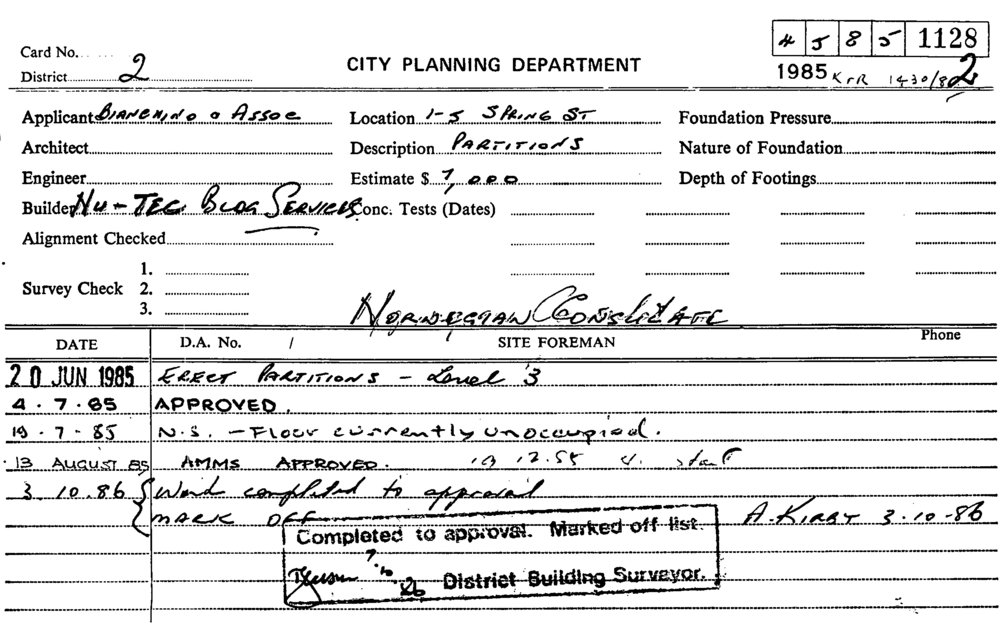 4 5 8 5 1128
Card No.
District 2
CITY PLANNING DEPARTMENT
1985 K&R 1430/82
Applicant Bianchino & Assoc Location 1-5 Spring St Foundation Pressure
Architect Description Partitions Nature of Foundation
Engineer Estimate $ 7,000 Depth of Footings
Builder Nu-Tec Bldg Services Conc. Tests (Dates)
Alignment Checked
1.
Survey Check 2.
3.
Norwegian Consulate
DATE D.A. No. / SITE FOREMAN Phone
20 JUN 1985 Erect Partitions - Level 3
4.7.85 APPROVED.
19.7.85 N.S. - Floor currently unoccupied.
13 AUGUST 85 AMMS APPROVED. 12.85 start
3.10.86 Work completed to approval
MARK OFF A. KIRBY 3.10.86
Completed to approval. Marked off list.
District Building Surveyor.